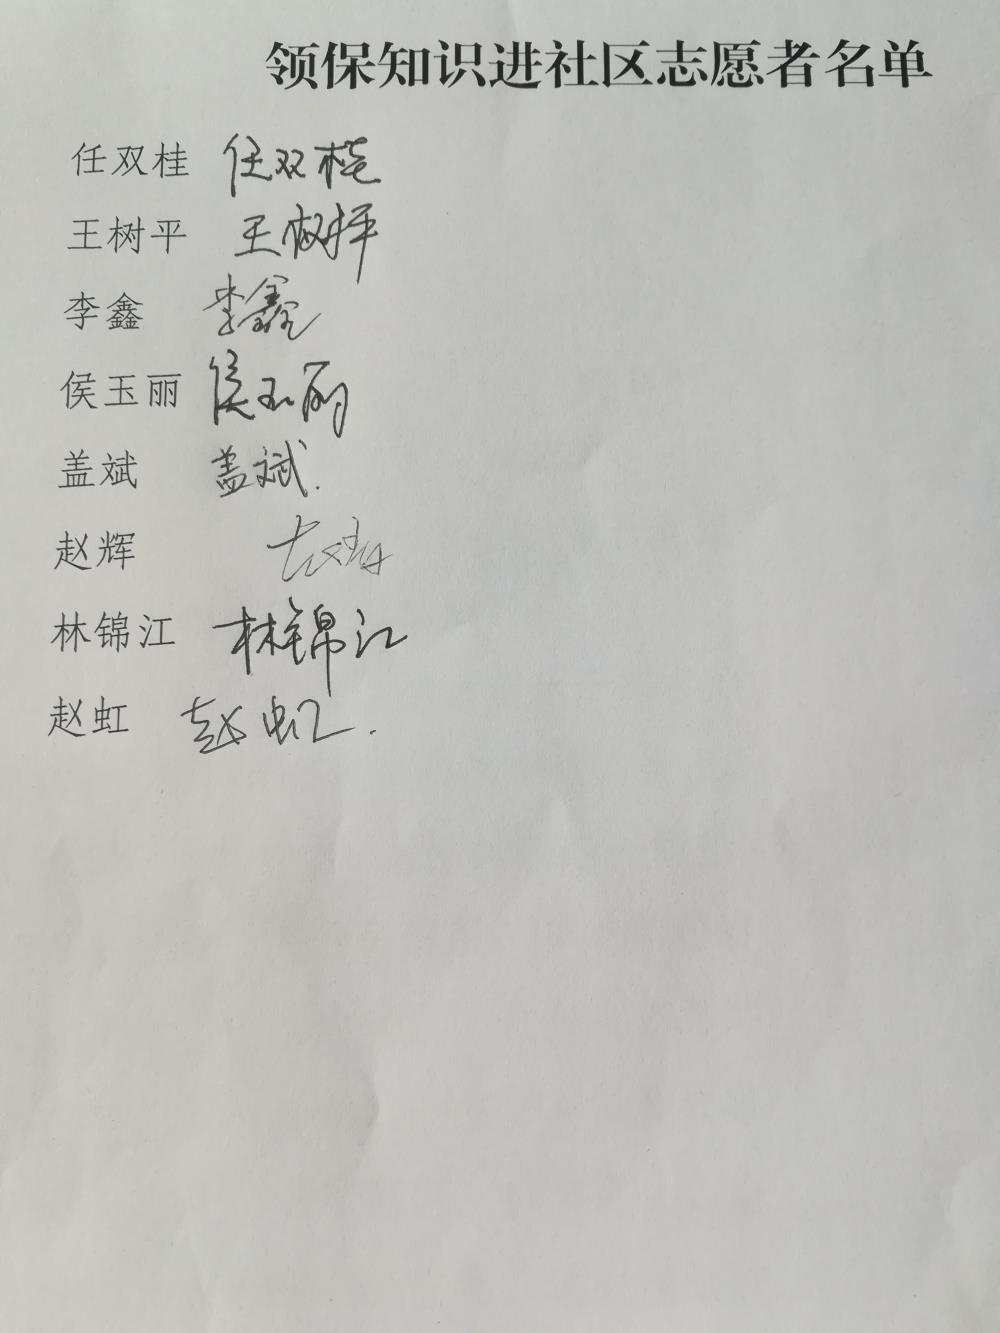 领保知识进社区志愿者名单
任双桂 任双桂
王树平 王树平
李鑫 李鑫
侯玉丽 侯玉丽
盖斌 盖斌.
赵辉
林锦江 林锦江
赵虹 赵虹.